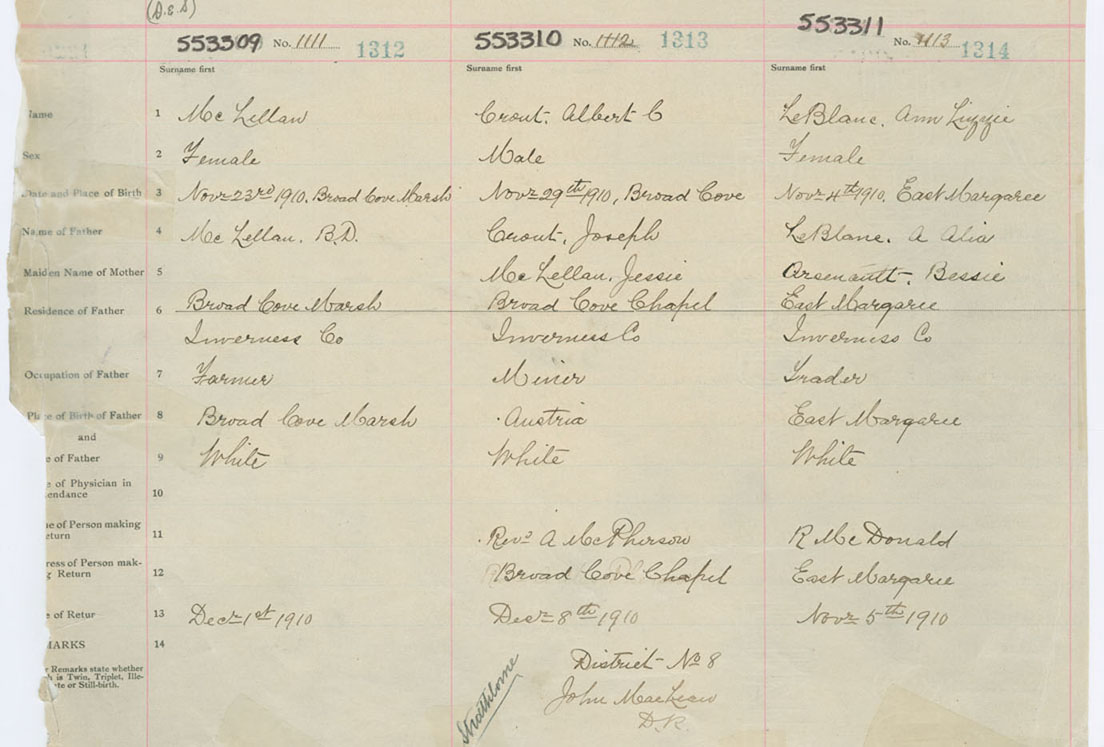 (D.S.S)
553309 No. 1111 1312
553310 No. 1112 1313
553311 No. 1113 1314
Surname first Surname first Surname first
Name 1 Mc Lellan Crout, Albert C LeBlanc, Ann Lizzie
Sex 2 Female Male Female
Date and Place of Birth 3 Novr 23rd 1910. Broad Cove Marsh Novr 29th 1910, Broad Cove Novr 4th 1910, East Margaree
Name of Father 4 Mc Lellan, B.D. Crout, Joseph LeBlanc, A
Maiden Name of Mother 5 Mc Lellan, Jessie Arsenault, Bessie
Residence of Father 6 Broad Cove Marsh Broad Cove Chapel East Margarie
Inverness Co Inverness Co Inverness Co
Occupation of Father 7 Farmer Miner Trader
Place of Birth of Father 8 Broad Cove Marsh Austria East Margarie
and
e of Father 9 White White White
e of Physician in
endance 10
ne of Person making
eturn 11 Revd A McPherson R McDonald
ress of Person mak-
g Return 12 Broad Cove Chapel East Margarie
e of Retur 13 Decr 1st 1910 Decr 8th 1910 Novr 5th 1910
MARKS 14
r Remarks state whether
h is Twin, Triplet, Ille-
te or Still-birth.
District No 8
Strathlorne
John MacLean
D.R.